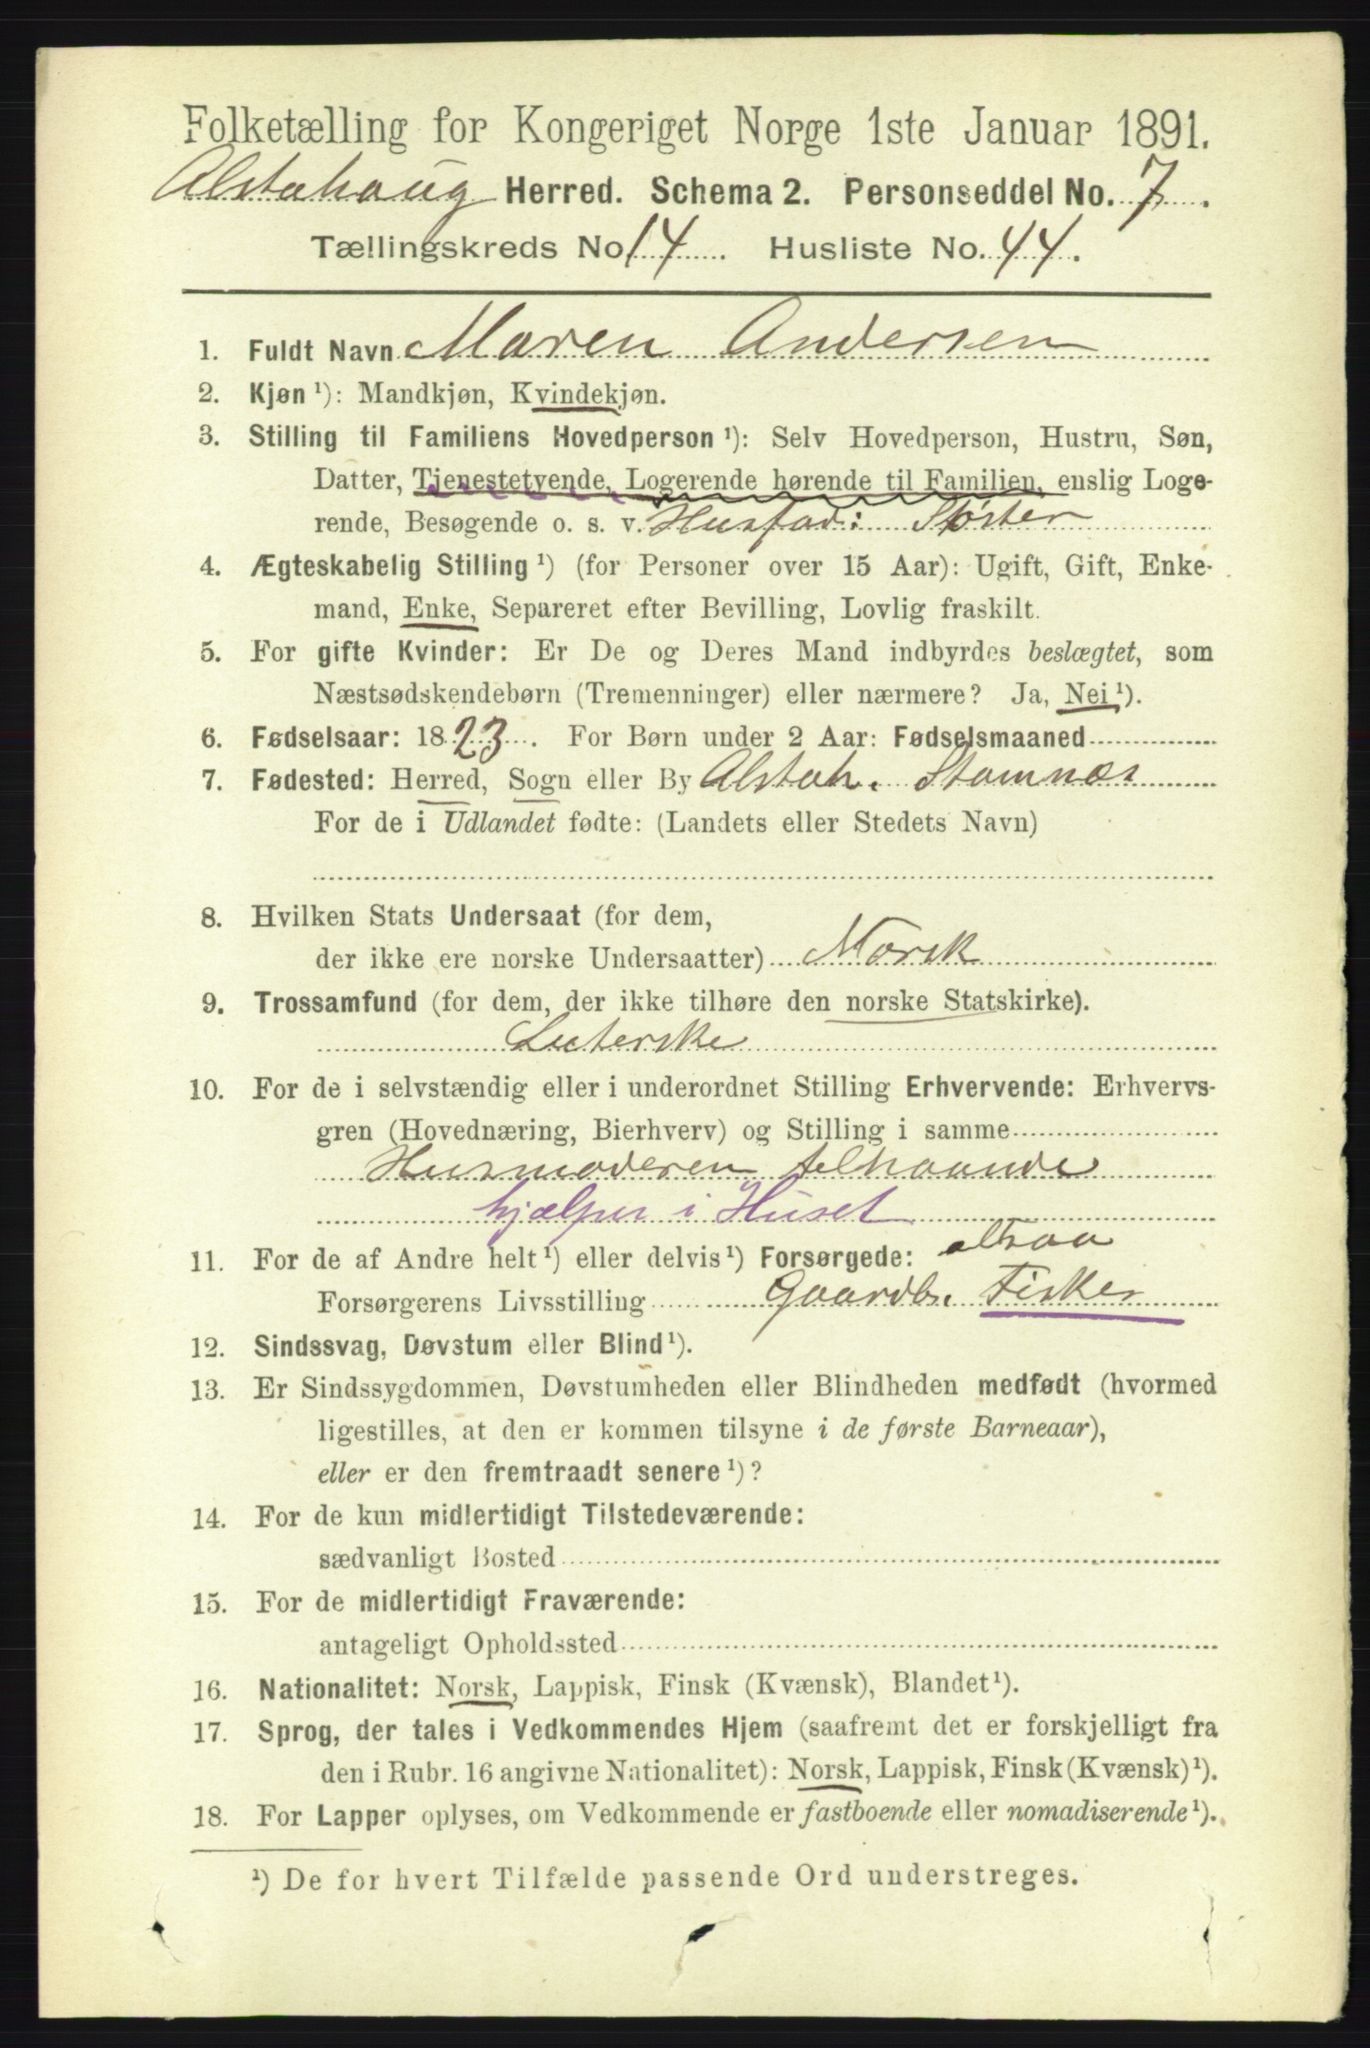 Folketælling for Kongeriget Norge 1ste Januar 1891.
Alstahaug Herred. Schema 2. Personseddel No. 7.
Tællingskreds No 14. Husliste No. 44.
1. Fuldt Navn Maren Andersen
2. Kjøn ¹): Mandkjøn, Kvindekjøn.
3. Stilling til Familiens Hovedperson ¹): Selv Hovedperson, Hustru, Søn,
Datter, Tjenestetyende, Logerende hørende til Familien, enslig Loge-
rende, Besøgende o. s. v. Husfad: Søster
4. Ægteskabelig Stilling ¹) (for Personer over 15 Aar): Ugift, Gift, Enke-
mand, Enke, Separeret efter Bevilling, Lovlig fraskilt.
5. For gifte Kvinder: Er De og Deres Mand indbyrdes beslægtet, som
Næstsødskendebørn (Tremenninger) eller nærmere? Ja, Nei ¹).
6. Fødselsaar: 1823. For Børn under 2 Aar: Fødselsmaaned
7. Fødested: Herred, Sogn eller By Alstah. Stamnæs
For de i Udlandet fødte: (Landets eller Stedets Navn)
8. Hvilken Stats Undersaat (for dem,
der ikke ere norske Undersaatter) Norsk
9. Trossamfund (for dem, der ikke tilhøre den norske Statskirke).
Luterske
10. For de i selvstændig eller i underordnet Stilling Erhvervende: Erhvervs-
gren (Hovednæring, Bierhverv) og Stilling i samme
Husmoderen telhaande
hjælper i Huset
11. For de af Andre helt ¹) eller delvis ¹) Forsørgede:
Forsørgerens Livsstilling Gaardb. Fisker
12. Sindssvag, Døvstum eller Blind ¹).
13. Er Sindssygdommen, Døvstumheden eller Blindheden medfødt (hvormed
ligestilles, at den er kommen tilsyne i de første Barneaar),
eller er den fremtraadt senere ¹)?
14. For de kun midlertidigt Tilstedeværende:
sædvanligt Bosted
15. For de midlertidigt Fraværende:
antageligt Opholdssted
16. Nationalitet: Norsk, Lappisk, Finsk (Kvænsk), Blandet ¹).
17. Sprog, der tales i Vedkommendes Hjem (saafremt det er forskjelligt fra
den i Rubr. 16 angivne Nationalitet): Norsk, Lappisk, Finsk (Kvænsk) ¹).
18. For Lapper oplyses, om Vedkommende er fastboende eller nomadiserende ¹).
¹) De for hvert Tilfælde passende Ord understreges.